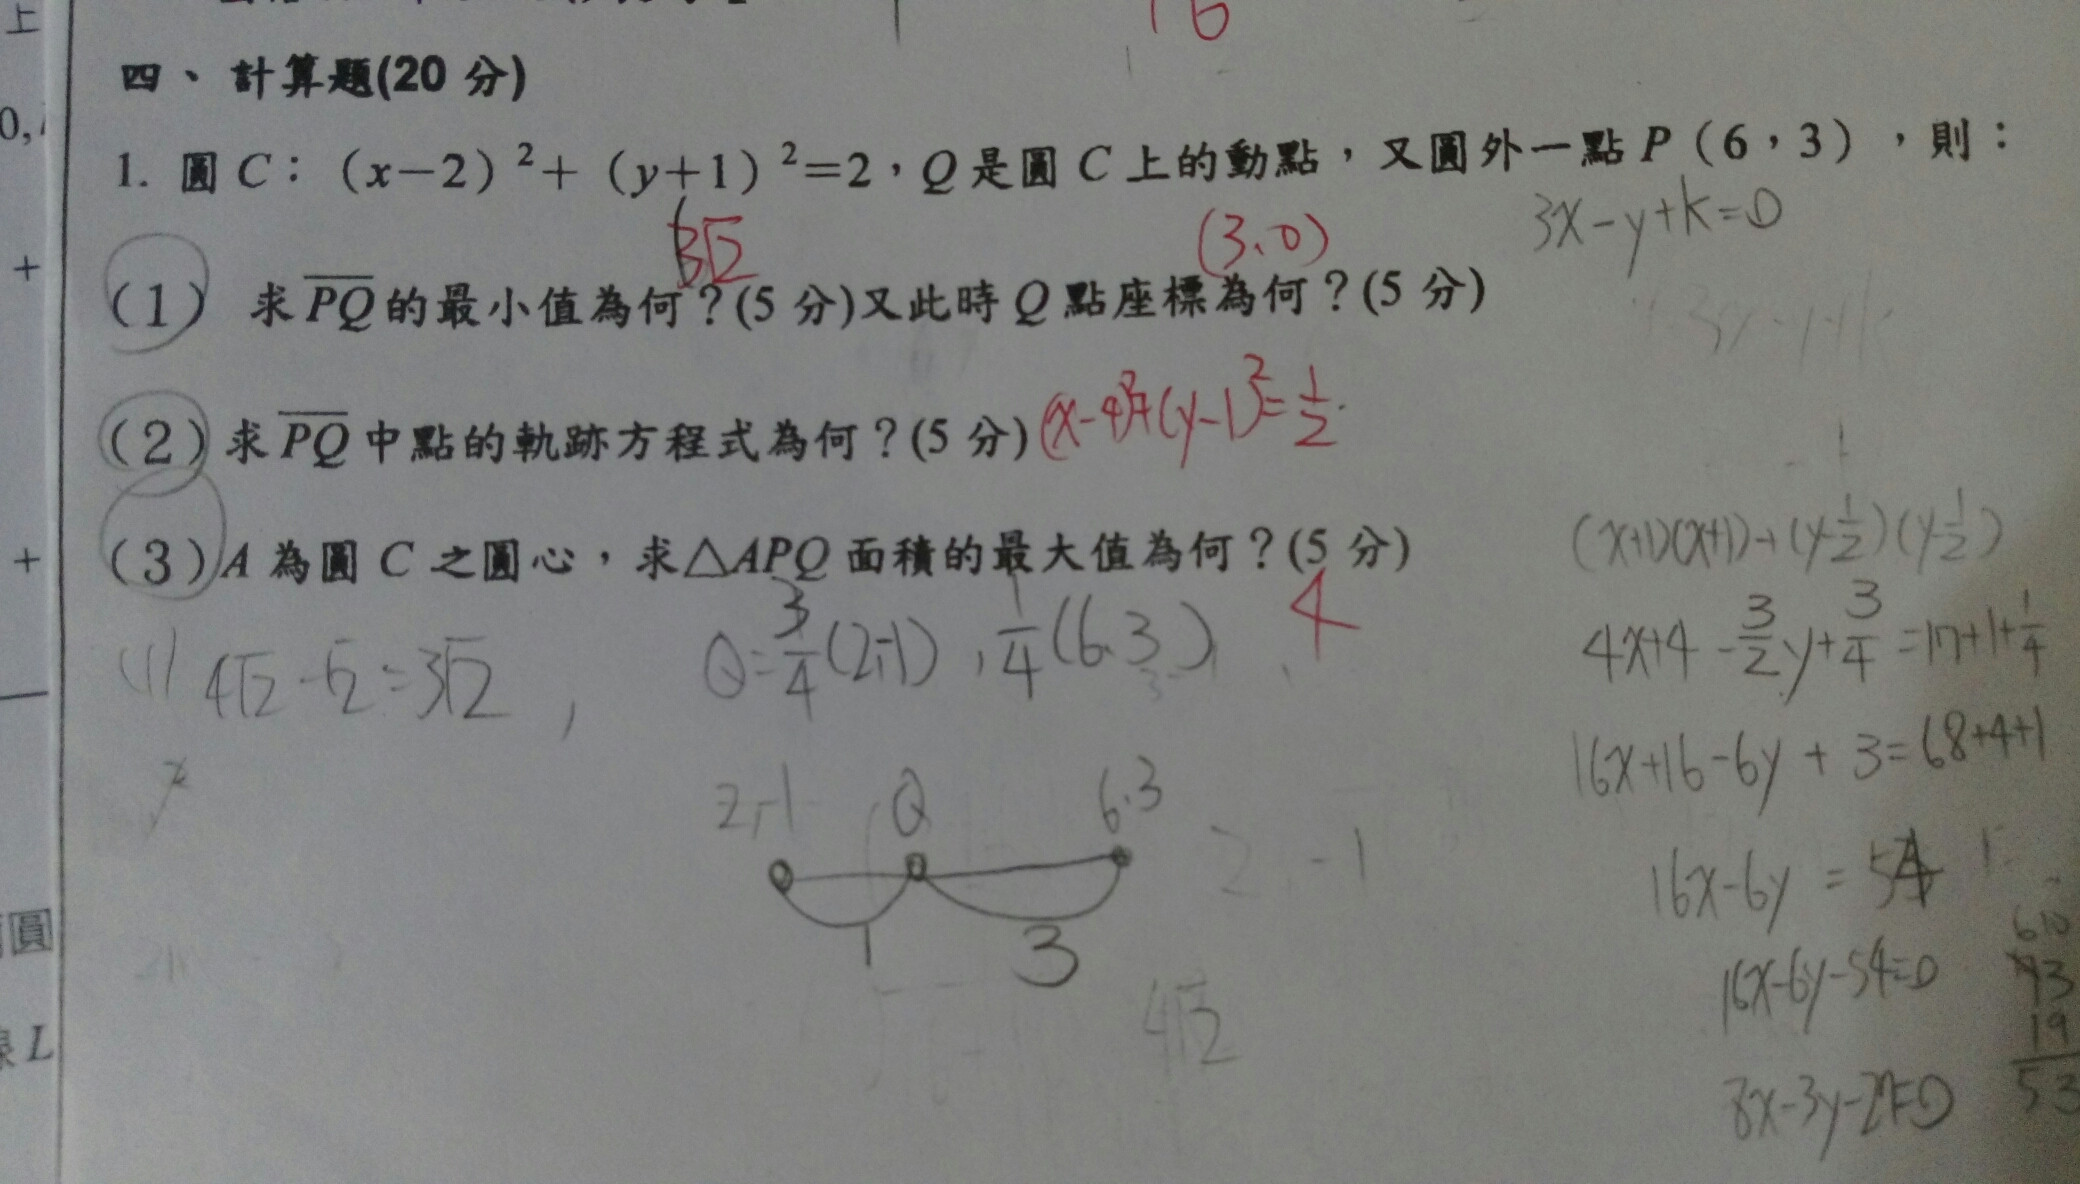 上
16
四、計算題(20 分)
0,
1. 圓 C：(x−2)²+(y+1)²=2，Q 是圓 C 上的動點，又圓外一點 P(6，3)，則：
3x-y+k=0
+
3√2
(3、0)
(1) 求 PQ 的最小值為何？(5 分)又此時 Q 點座標為何？(5 分)
(2) 求 PQ 中點的軌跡方程式為何？(5 分) (x-4)²+(y-1)²=1/2
+
(3) A 為圓 C 之圓心，求△APQ 面積的最大值為何？(5 分)
4
(1) 4√2-√2=3√2 ,
Q=3/4(2,-1) , 1/4(6.3)
2,-1 Q 6.3
1 3
2 -1
4√2
(x+1)(x+1)+(y-1/2)(y-1/2)
4x+4-3/2y+3/4=17+1+1/4
16x+16-6y+3=68+4+1
16x-6y=54
16x-6y-54=0
8x-3y-27=0
19
53
圓
L